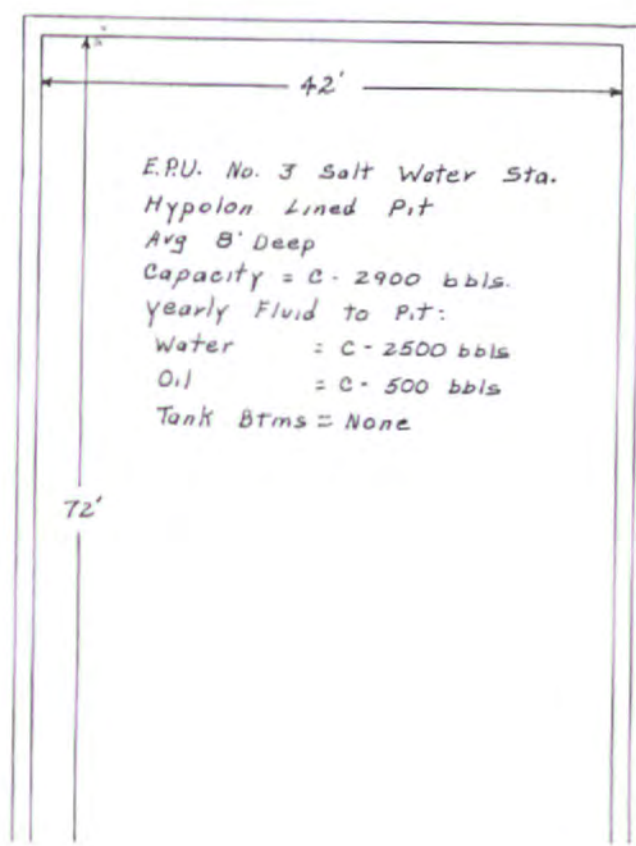 42'
E.P.U. No. 3 Salt Water Sta.
Hypolon Lined Pit
Avg 8' Deep
Capacity = C - 2900 bbls.
Yearly Fluid to Pit:
Water = C - 2500 bbls
Oil = C - 500 bbls
Tank Btms = None
72'